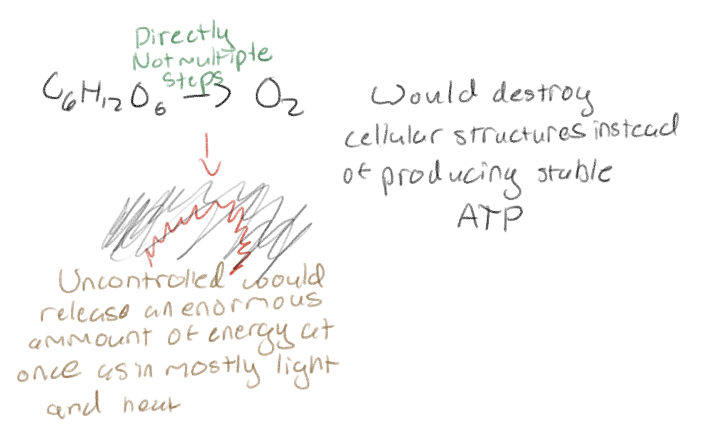 Directly
Not multiple
steps
C6H12O6 → O2
Would destroy
cellular structures instead
of producing stable
ATP
Uncontrolled would
release an enormous
ammount of energy at
once as in mostly light
and heat